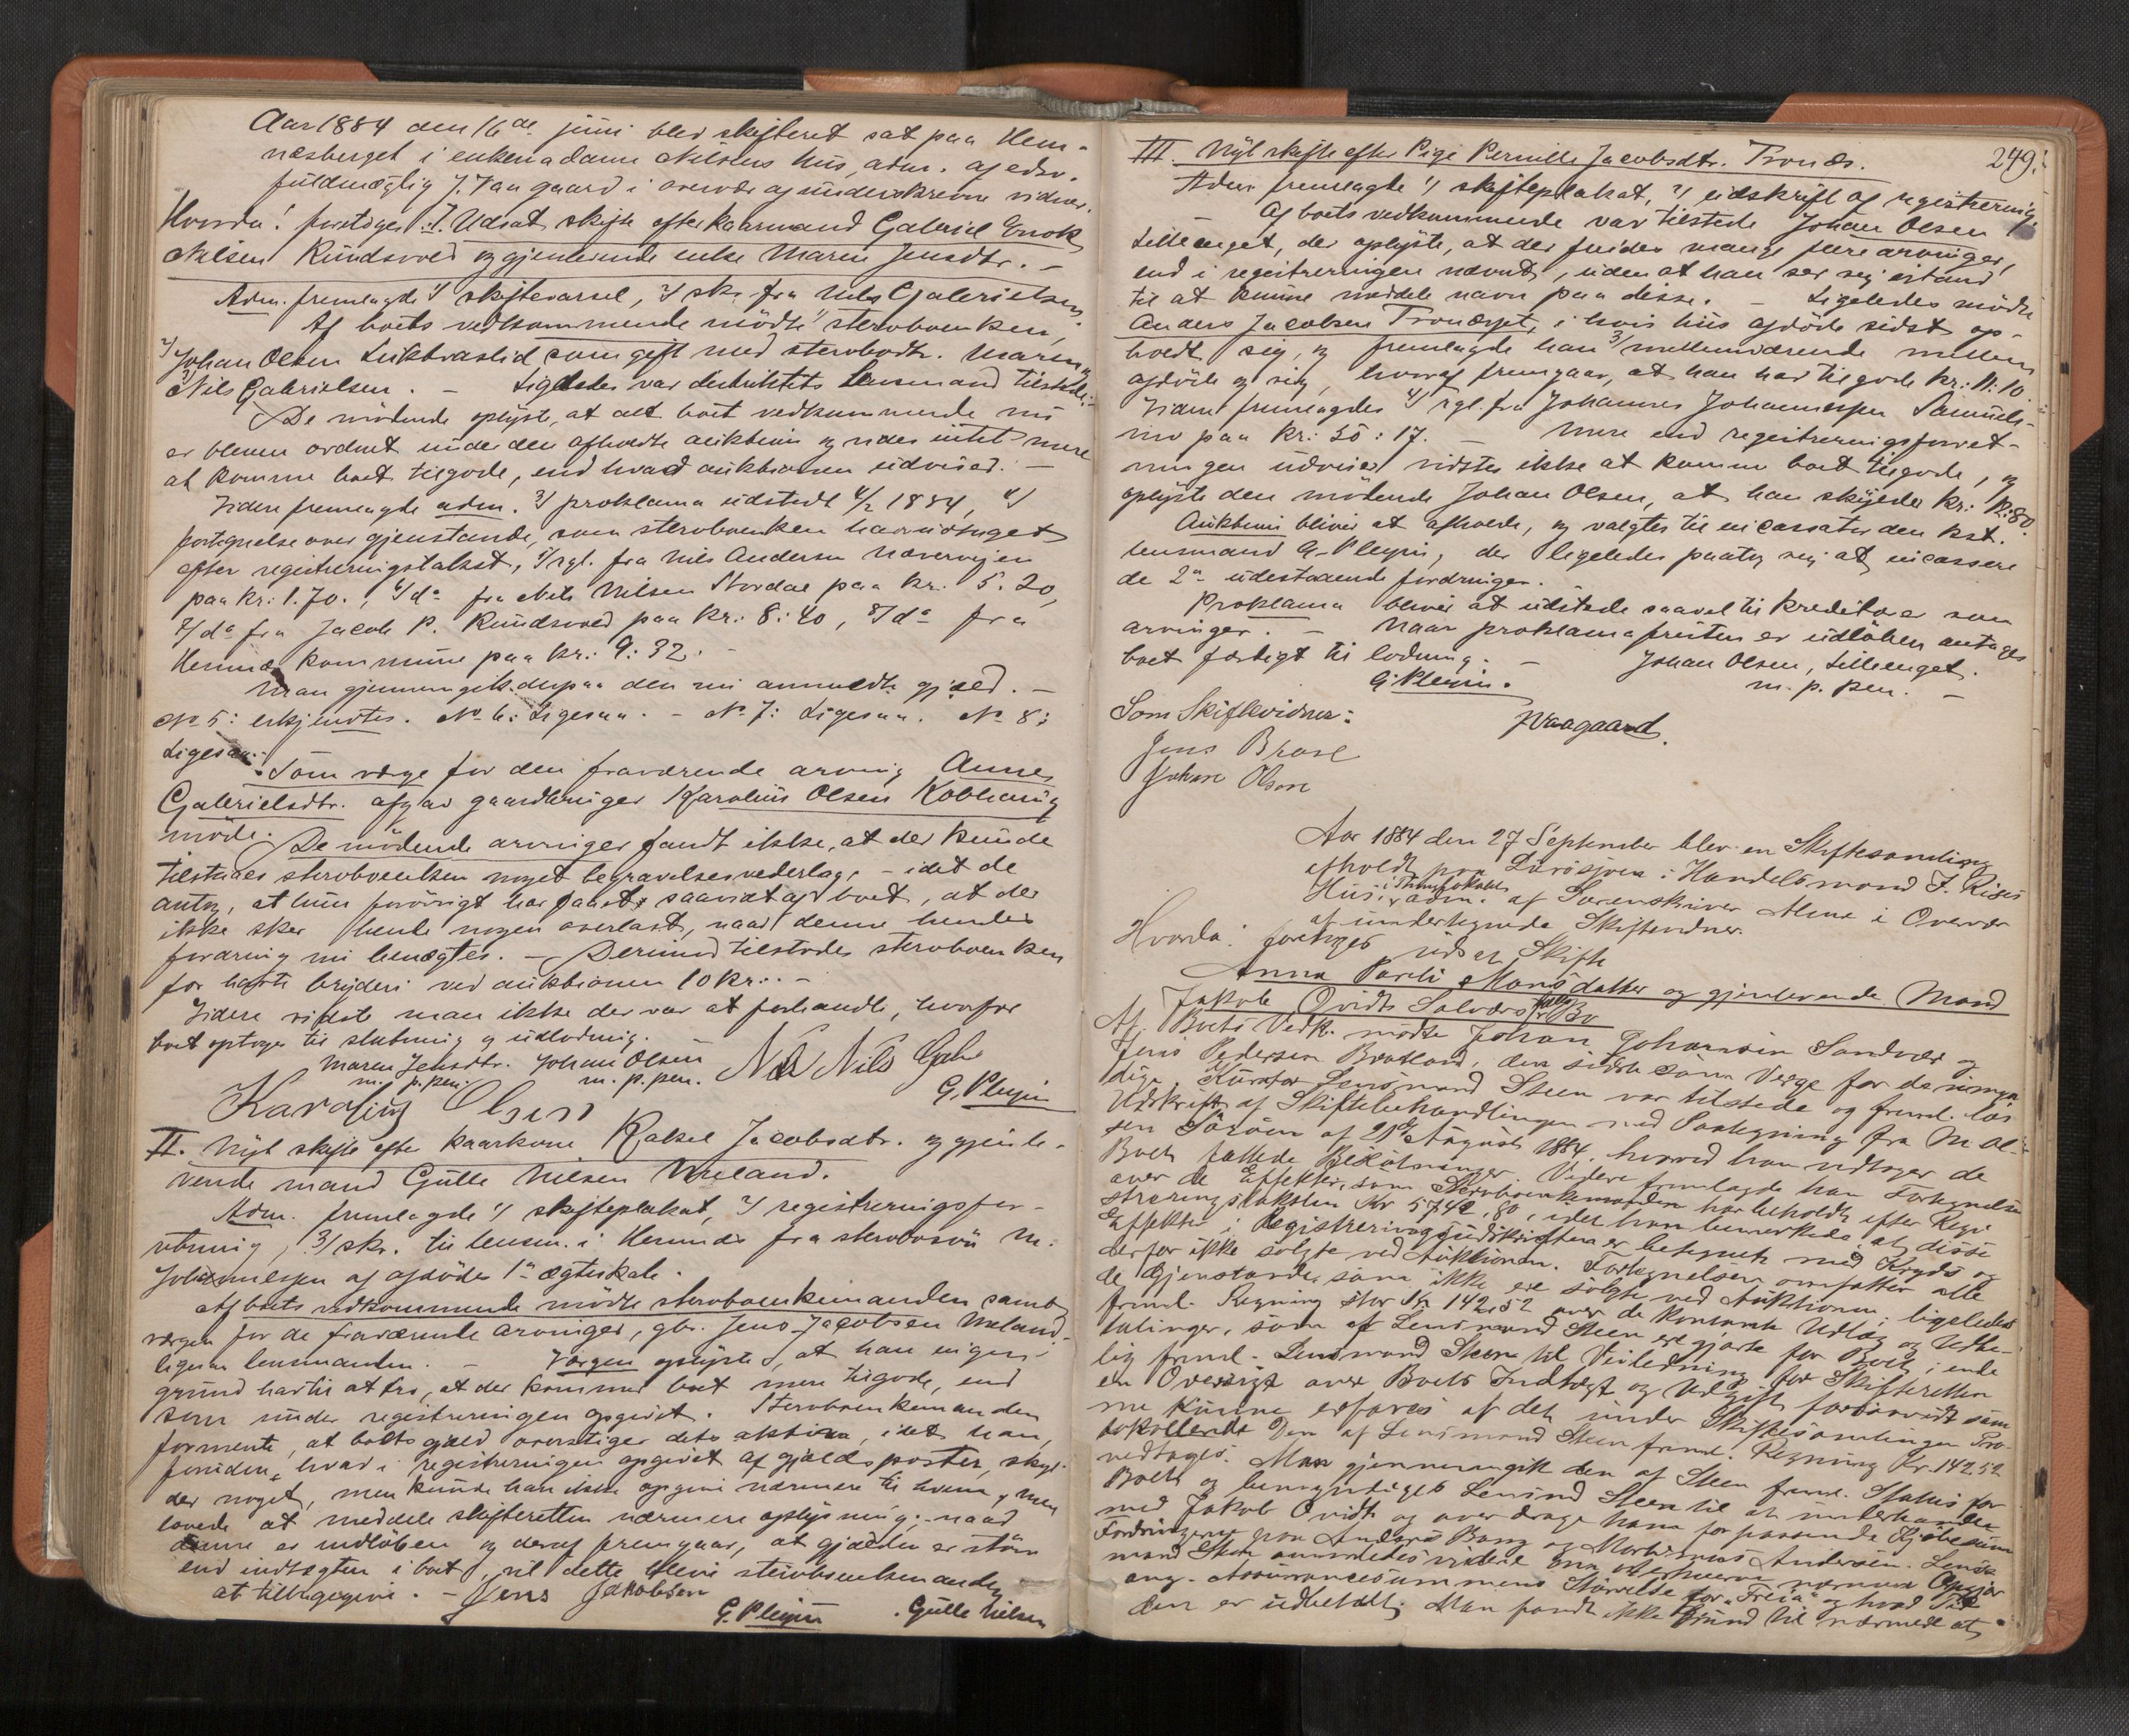 Aar 1884 den 16de juni blev skifteret sat paa Hem-
næsberget i enkemadame Nilsens hus, adm. af edsv.
fuldmægtig J. Vaagaard i overvær af underskrevne vidner.
Hvorda! foretoges: I. Udsat skifte efter kaarmand Gabriel Enok
Nilsen Rundsved og gjenlevende enke Maren Jensdtr. -
Adm. fremlagde 1/ skiftevarsel, 2/ skr. fra Nils Gabrielsen.
Af boets vedkommende mödte 1/ stervboenken,
2/ Johan Olsen Leikbraslid som gift med stervbodtr. Maren,
3/ Nils Gabrielsen. - Ligeledes var distriktets lensmand tilstede. -
De mödende oplyste, at alt boet vedkommende nu
er bleven ordnet under den afholdte auktion og vides intet mere
at komme boet tilgode, end hvad auktionen udviser. -
Videre fremlagte adm. 3/ proklama udstedt 4/2 1884, 4/
fortegnelse over gjenstande, som stervboenken har udtaget
efter registreringstakst, 5/ rgl. fra Nils Andersen Nærvigen
paa kr: 1.70., 6/ do fra Nils Nilsen Stordal paa kr. 5.20,
7/ do fra Jacob P. Rundsved paa kr: 8:40, 8/ do fra
Hemnæs kommune paa kr: 9:32. -
Man gjennemgik derpaa den nu anmeldte gjæld. -
No 5: erkjendtes. No 6: Ligesaa. - No 7: Ligesaa. No 8:
Ligesaa. -
Som værge for den fraværende arving Anne
Gabrielsdtr. afgav gaardbruger Karolius Olsen Kobhaug
möde. De mödende arvinger fandt ikke, at der kunde
tilstaaes stervboenken noget begravelsesvederlag, - idet de
antog, at hun forövrigt har faaet saavidt af boet, at der
ikke sker hende nogen overlast, naar denne hendes
fordring nu benægtes. - Derimod tilstodes stervboenken
for havte bryderi ved auktionen 10 kr: -
Videre vidste man ikke der var at forhandle, hvorfor
boet optoges til slutning og udlodning.
Maren Jensdtr. Johan Olsen Nils Gabr
m. p. pen. m. p. pen.
Karolius Olsen G. Pleyin
II. Nyt skifte efter kaarkone Rakel Jacobsdtr. og gjenle-
vende mand Gulle Nilsen Uneland.
Adm. fremlagde 1/ skifteplakat, 2/ registreringsfor-
retning, 3/ skr. til lensm. i Hemnæs fra stervbosön M.
Johannessen af afdödes 1ste ægteskab.
Af boets vedkommende mödte stervboenkemanden samt
værgen for de fraværende arvinger, gbr. Jens Jacobsen Uneland,
ligesaa lensmanden. - Værgen oplyste, at han ingen
grund har til at tro, at der kommer boet mere tilgode, end
som under registreringen opgivet. Stervboenkemanden
formente, at boets gjæld overstiger dets aktiva, idet han,
foruden hvad i registreringen opgivet af gjældsposter, skyl-
der noget, men kunde han ikke opgive nærmere til hvem, men
lovede at meddele skifteretten nærmere oplysning; - naar
denne er indlöben og deraf fremgaar, at gjælden er större
end indtægten i boet, vil dette blive stervboenkemanden
at tilbagegive. - Jens Jakobsen
G. Pleyin . Gulle Nilsen
249.
III. Nyt skifte efter Pige Pernille Jacobsdtr. Tronæs.
Adm. fremlagde 1/ skifteplakat, 2/ udskrift af registrering.
- Af boets vedkommende var tilstede Johan Olsen
Lilleenget, der oplyste, at der findes mange flere arvinger,
end i registreringen nævnt, uden at han ser sig istand
til at kunne meddele navn paa disse. - Ligeledes mödte
Anders Jacobsen Tronæset, i hvis hus afdöde sidst op-
holdt sig, og fremlagde han 3/ mellemværende mellem
afdöde og sig, hvoraf fremgaar, at han har tilgode kr: 11:10.
Videre fremlagdes 4/ rgl. fra Johannes Johannessen Samuels-
mo paa kr: 30:17. - Mere end registreringsforret-
ningen udviser vidstes ikke at komme boet tilgode, og
oplyste den mödende Johan Olsen, at han skylder kr: 12:80.
Auktion bliver at afholde, og valgtes til incassator den kst.
lensmand G. Pleyin, der ligeledes paatog sig at incassere
de 2de udestaaende fordringer.
Proklama bliver at udstede saavel til kreditorer som
arvinger. - Naar proklamafristen er udlöben antages
boet færdigt til lodning. - Johan Olsen, Lilleenget.
G. Pleyin. m. p. pen. -
Som Skiftevidner:
JVaagaard.
Jens Brasl
Johan Olsen
Aar 1884 den 27 September blev en Skiftesamling
afholdt paa Dörösjoen i Handelsmand J. Riises
Hus, i Thinglokalet, adm. af Sorenskriver Alme i Overvær
af undertegnede Skiftevidner.
Hvorda! foretoges udsat Skifte
Anna Parli Monsdatter og gjenlevende Mand
Jakob Qvidts Solværs fælles Bo
Af Boets Vedk. mödte Johan Johansen Sandvær og
Jens Pedersen Bratland, den sidste som Verge for de umyn
dige. Kurator Lensmand Steen var tilstede og freml. en
Udskrift af Skiftebehandlingen med Paategning fra M Ol-
sen Söröen af 21de August 1884, hvorved han vedtager de
Boets fattede Beslutninger. Videre fremlagde han Fortegnelse
over de Effekter, som Stervboenkemanden har beholdt efter Regi-
streringstaksten Kr 5742,80, idet han bemerkede at disse
Effekter i Registreringsudskriften er betegnet med Kryds og
derfor ikke solgte ved Auktionen. Fortegnelsen omfatter alle
de Gjenstande, som ikke ere solgte ved Auktionen; ligeledes
freml. Regning stor Kr 142,52 over de kontante Udlæg og Udbe-
talinger, som af Lensmand Steen ere gjorte for Boet; ende
lig freml. Lensmand Steen til Veiledning for Skifteretten
en Oversigt over Boets Indtægt og Udgift forsaavidt som
me kunne erfares af det under Skiftesamlingen Pro-
tokollerede Den af Lensmand Steen freml. Regning Kr. 142.52
vedtoges. Man gjennemgik den af Steen freml. Status for
Boet og bemyndiges Lensmd Steen til at underhandle
med Jakob Qvidt og overdrage ham for passende Kjöbesum
Fordringerne paa Anders Bang og Martinus Andersen. Lens-
mand Steen anmodedes
ang. Assurancesummens Störrelse for "Freia" og hvad Tid
den er udbetalt. Man fandt ikke Grund til nærmere at